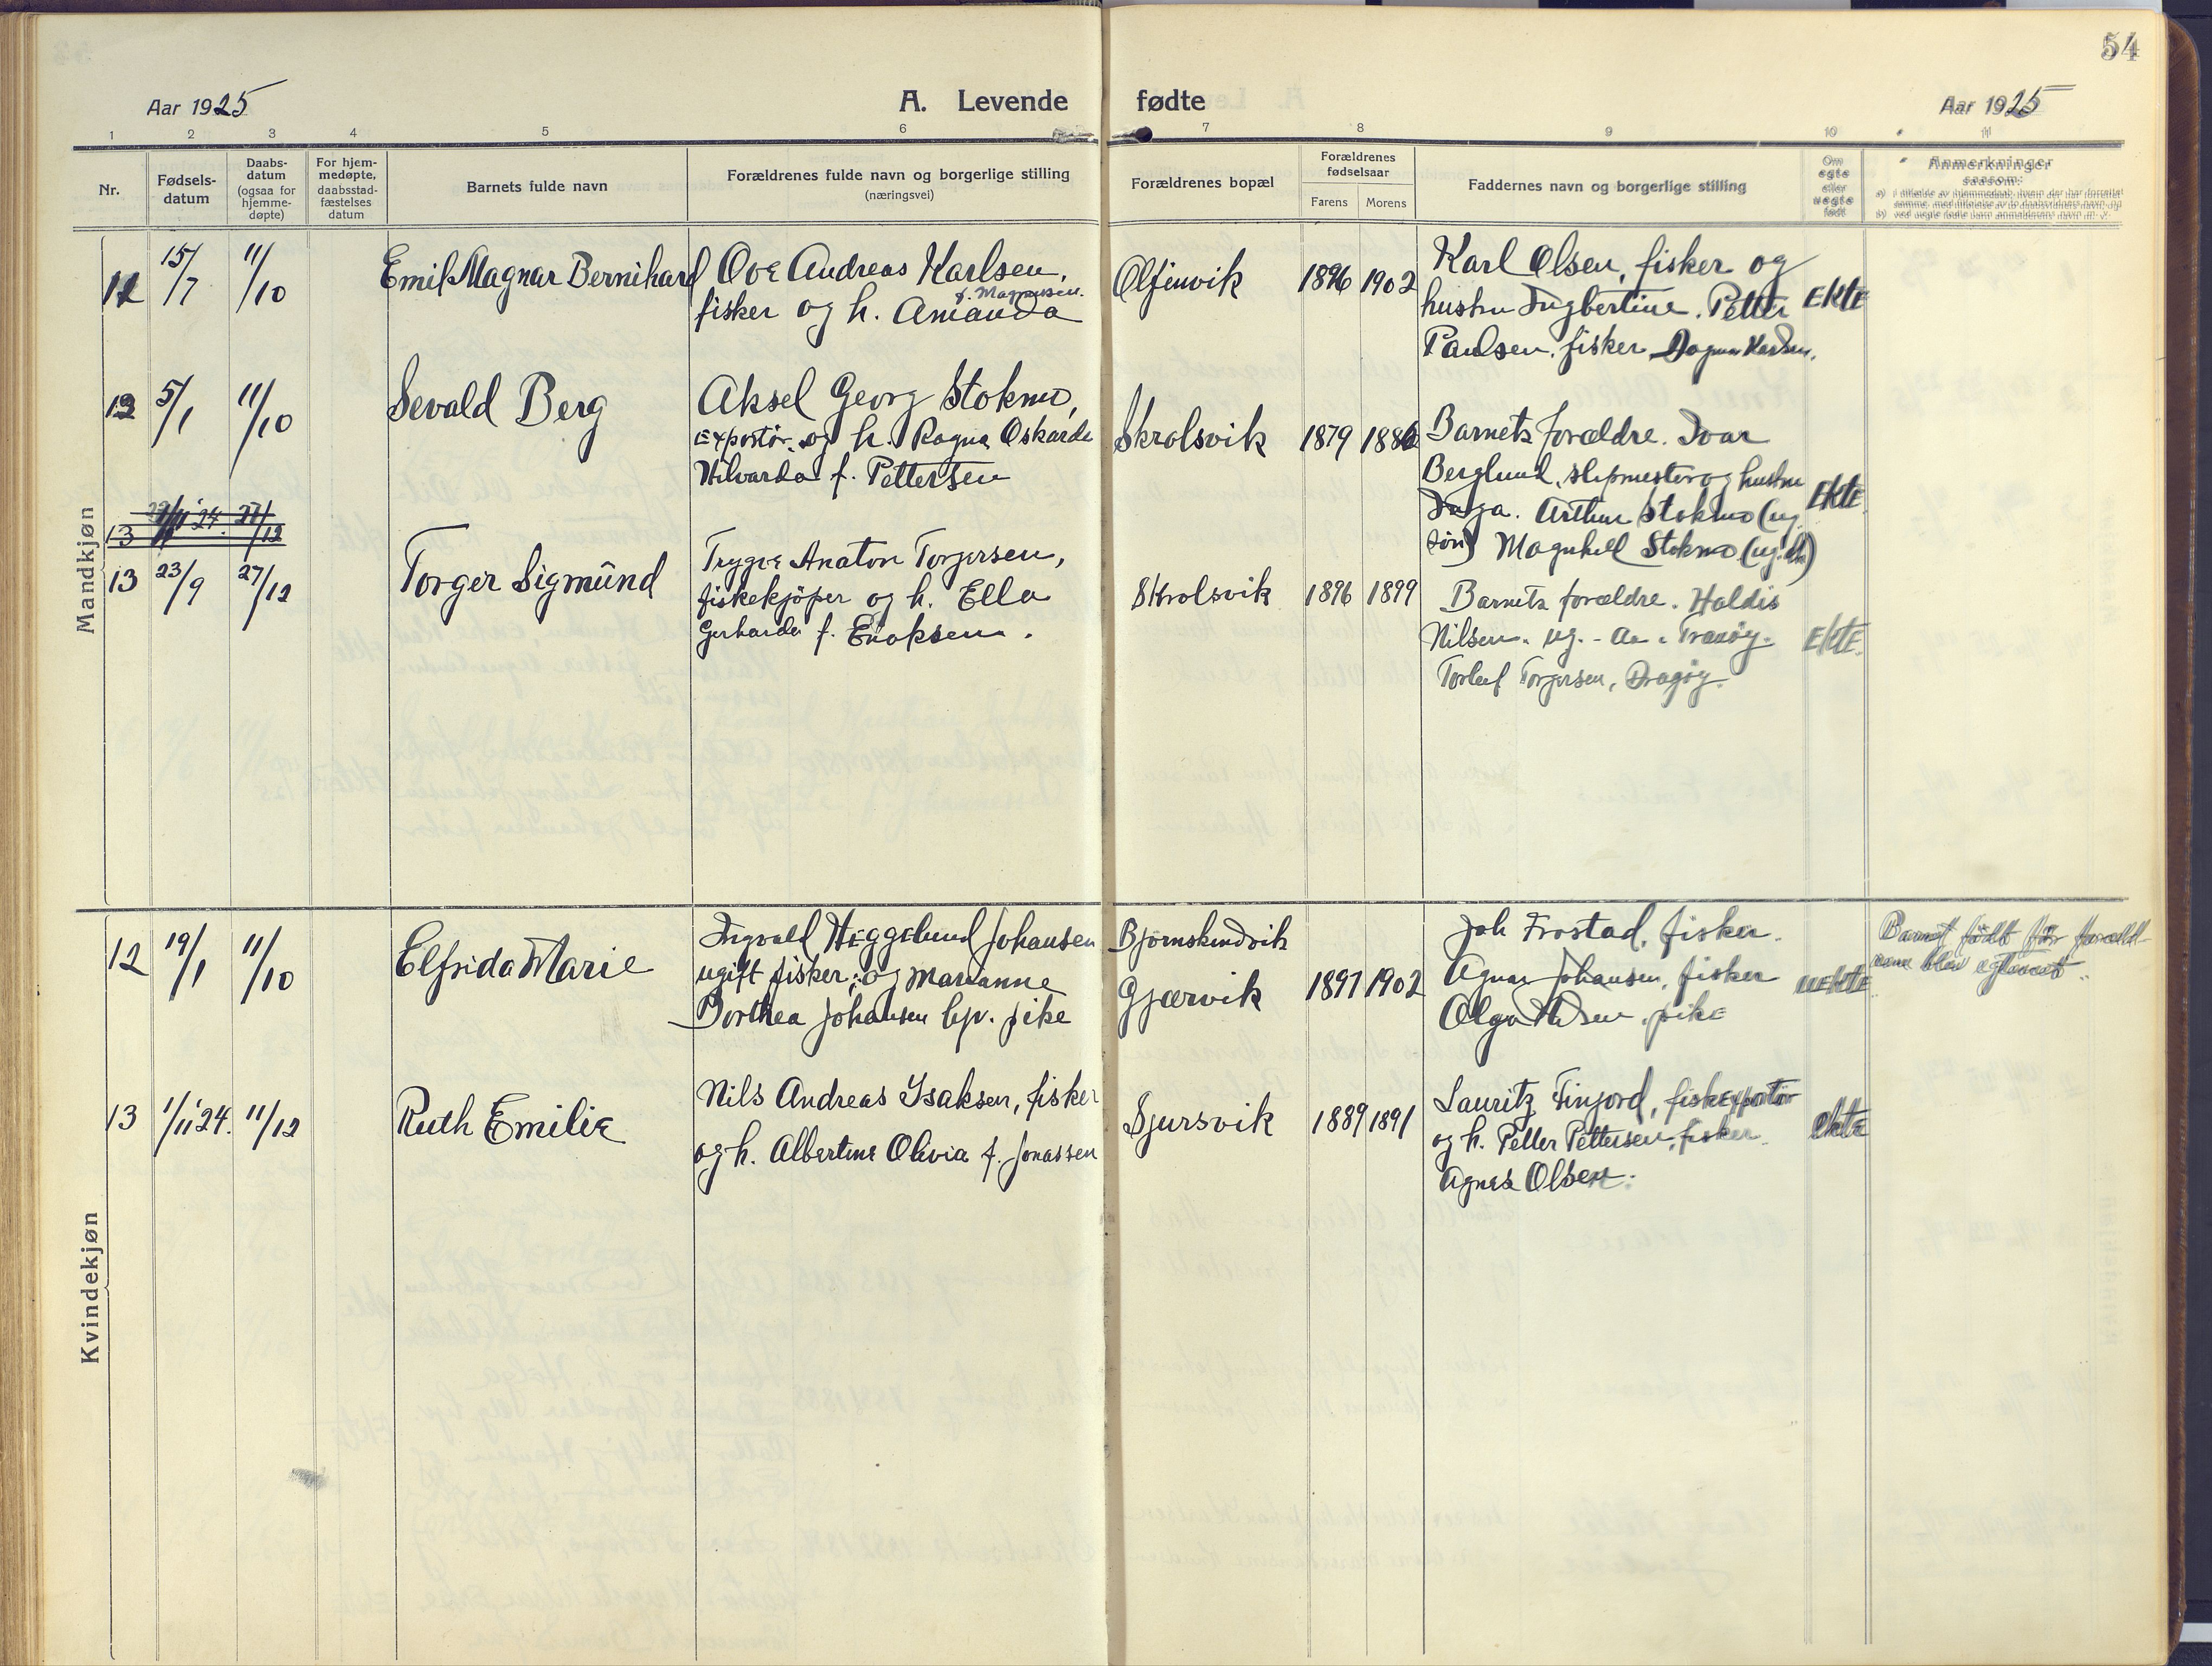 54
Aar 1925
A. Levende fødte
Aar 1925
1 2 3 4 5 6 7 8 9 10 11
Nr.
Fødsels-
datum
Daabs-
datum
(ogsaa for
hjemme-
døpte)
For hjem-
medøpte,
daabsstad-
fæstelses
datum
Barnets fulde navn
Forældrenes fulde navn og borgerlige stilling
(næringsvei)
Forældrenes bopæl
Forældrenes
fødselsaar
Farens Morens
Faddernes navn og borgerlige stilling
Om
egte
eller
uegte
født
Anmerkninger
saasom:
Mandkjøn
11 15/7 11/10
Emil Magnar Bernihard
Ove Andreas Karlsen,
f. Magnussen.
fisker og h. Amanda
1896 1902
Karl Olsen, fisker og
hustru Ingbertine. Petter
Paulsen, fisker Dagna Karlsen.
Ekte
12 5/1 11/10
Sevald Berg
Aksel Georg Stokmo,
Exportør og h. Ragna Oskarda
Hilvarda f. Pettersen
Skrolsvik
1879 1886
Barnets forældre. Ivar
Berglund, slipmester og hustru
Inga. Arthur Stokmo (ug.
søn) Magnhell Stokmo
Ekte
13 24. 27/12
13 23/9 27/12
Torger Sigmund
Trygve Anaton Torgersen,
fiskekjöper og h. Ella
Gerharda f. Enoksen.
Skrolsvik
1896 1899
Barnets forældre. Haldis
Nilsen. ug. Tranöy.
Torleif Torgersen, Dragöy.
Ekte.
Kvindekjøn
12 19/1 11/10
Elfrida Marie
Ingvald Heggelund Johansen
ugift fisker; og Marianne
Dorthea Johansen pike
Bjornskindvik
Gjærvik
1897 1902
Joh Frostad, fisker.
Agnar Johansen, fisker
Olga pike
uekte
Barnet födt för foræld-
rene blev egteviet.
13 1/11 24. 11/12
Ruth Emilie
Nils Andreas Isaksen, fisker
og h. Albertine Olivia f. Jonassen
Sjursvik
1889 1891
Lauritz Finjord, fiskexportör
og h. Petter Pettersen, fisker.
Agnes Olsen.
Ekte